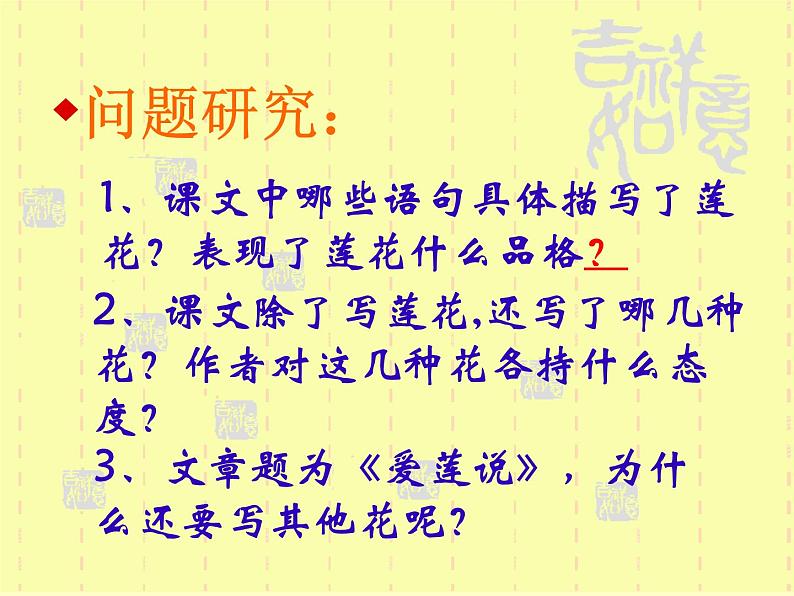 吉祥如意
问题研究：
1、课文中哪些语句具体描写了莲
花？表现了莲花什么品格？
2、课文除了写莲花,还写了哪几种
花？作者对这几种花各持什么态
度？
3、文章题为《爱莲说》，为什
么还要写其他花呢？